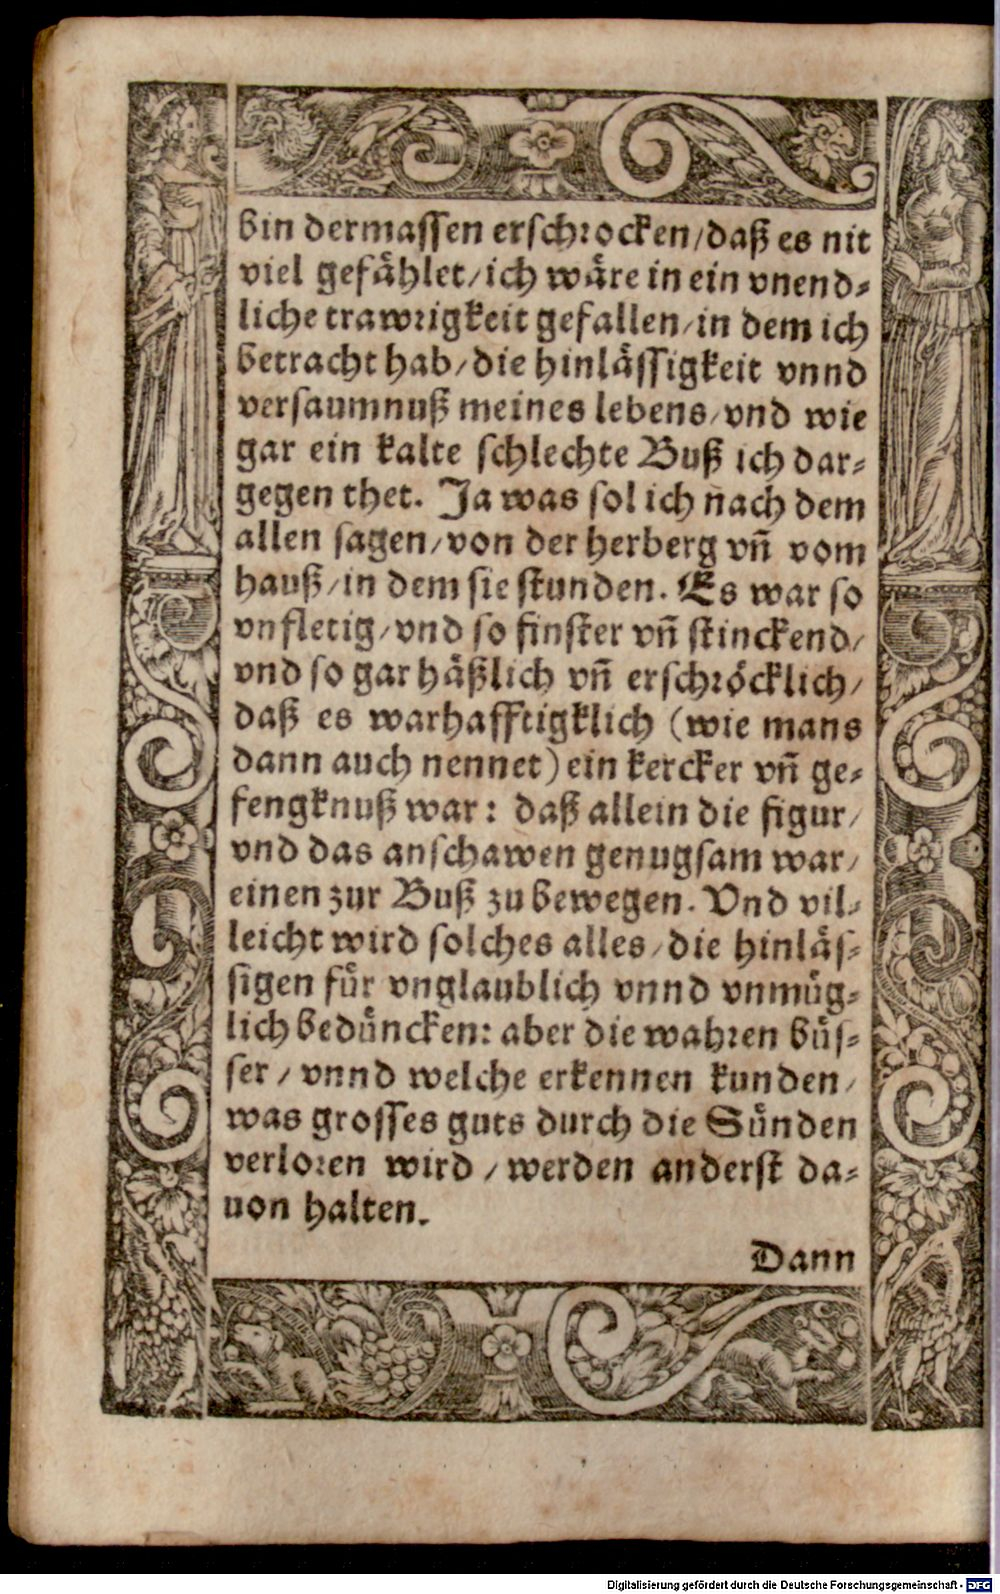 bin dermassen erschrocken/daß es nit
viel gefaͤhlet/ich waͤre in ein vnend-
liche trawrigkeit gefallen/in dem ich
betracht hab/die hinlaͤssigkeit vnnd
versaumnuß meines lebens/vnd wie
gar ein kalte schlechte Buß ich dar-
gegen thet. Ja was sol ich nach dem
allen sagen/von der herberg vñ vom
hauß/in dem sie stunden. Es war so
vnfletig/vnd so finster vñ stinckend/
vnd so gar haͤßlich vñ erschroͤcklich/
daß es warhafftigklich (wie mans
dann auch nennet) ein kercker vñ ge-
fengknuß war: daß allein die figur/
vnd das anschawen genugsam war/
einen zur Buß zu bewegen. Vnd vil-
leicht wird solches alles/die hinlaͤs-
sigen fuͤr vnglaublich vnnd vnmuͤg-
lich beduͤncken: aber die wahren buͤs-
ser/vnnd welche erkennen kunden/
was grosses guts durch die Suͤnden
verloren wird/werden anderst da-
uon halten.
Dann
Digitalisierung gefördert durch die Deutsche Forschungsgemeinschaft - DFG